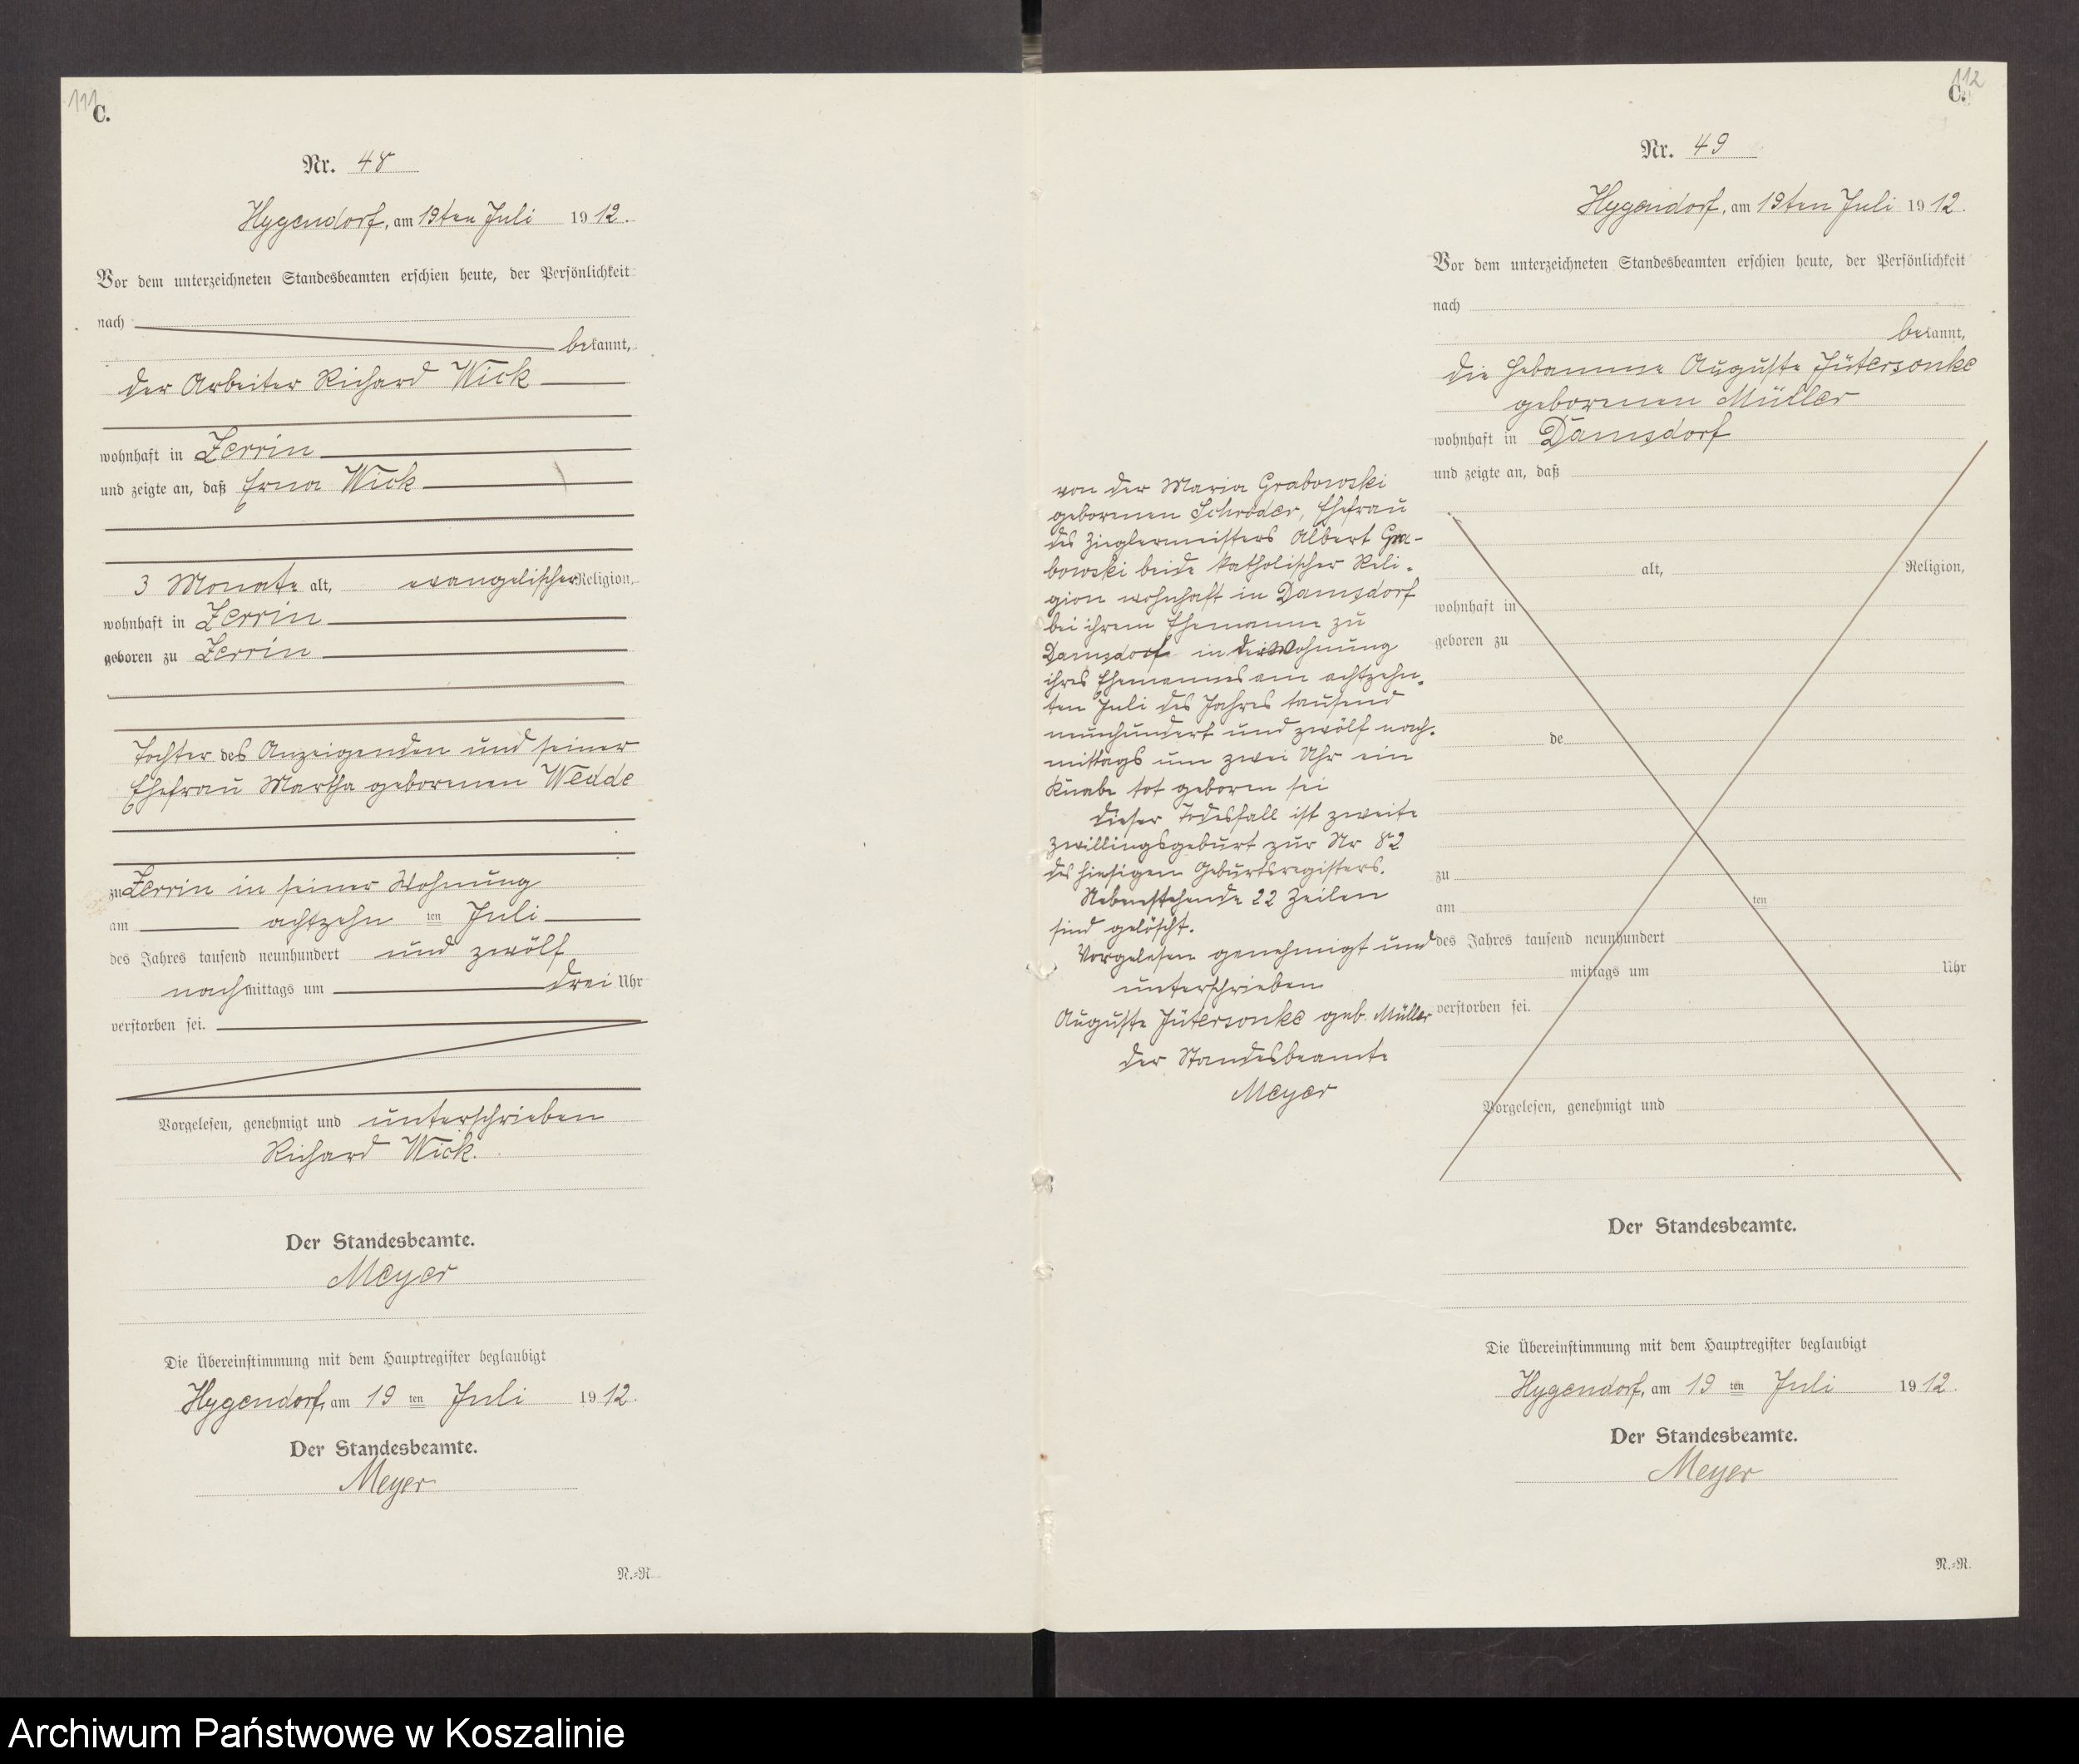 111
C.
Nr. 48
Hygendorf, am 19ten Juli 1912.
Vor dem unterzeichneten Standesbeamten erschien heute, der Persönlichkeit
nach
bekannt,
der Arbeiter Richard Wick
wohnhaft in Zerrin
und zeigte an, daß Erna Wick
3 Monate alt, evangelischer Religion,
wohnhaft in Zerrin
geboren zu Zerrin
Tochter des Anzeigenden und seiner
Ehefrau Martha geborenen Wedde
zu Zerrin in seiner Wohnung
am achtzehn ten Juli
des Jahres tausend neunhundert und zwölf
nachmittags um drei Uhr
verstorben sei.
Vorgelesen, genehmigt und unterschrieben
Richard Wick.
Der Standesbeamte.
Meyer
Die Übereinstimmung mit dem Hauptregister beglaubigt
Hygendorf, am 19 ten Juli 1912.
Der Standesbeamte.
Meyer
N.=R.
112
C.
Nr. 49
Hygendorf, am 19ten Juli 1912.
Vor dem unterzeichneten Standesbeamten erschien heute, der Persönlichkeit
nach
bekannt,
die Hebamme Auguste Jütersonke
geborenen Müller
wohnhaft in Damsdorf
und zeigte an, daß
alt, Religion,
wohnhaft in
geboren zu
de
zu
am ten
des Jahres tausend neunhundert
mittags um Uhr
verstorben sei.
Vorgelesen, genehmigt und
von der Maria Grabowski
geborenen Schröder, Ehefrau
des Zieglermeisters Albert Gra-
bowski beide katholischer Reli-
gion wohnhaft in Damsdorf
bei ihrem Ehemanne zu
Damsdorf in der Wohnung
ihres Ehemannes am achtzehn-
ten Juli des Jahres tausend
neunhundert und zwölf nach-
mittags um zwei Uhr ein
Knabe tot geboren sei
Dieser Todesfall ist zweite
Zwillingsgeburt zur Nr 82
des hiesigen Geburtsregisters.
Nebenstehende 22 Zeilen
sind gelöscht.
Vorgelesen genehmigt und
unterschrieben
Auguste Jütersonke geb. Müller
Der Standesbeamte
Meyer
Der Standesbeamte.
Die Übereinstimmung mit dem Hauptregister beglaubigt
Hygendorf, am 19 ten Juli 1912.
Der Standesbeamte.
Meyer
N.=R.
Archiwum Państwowe w Koszalinie